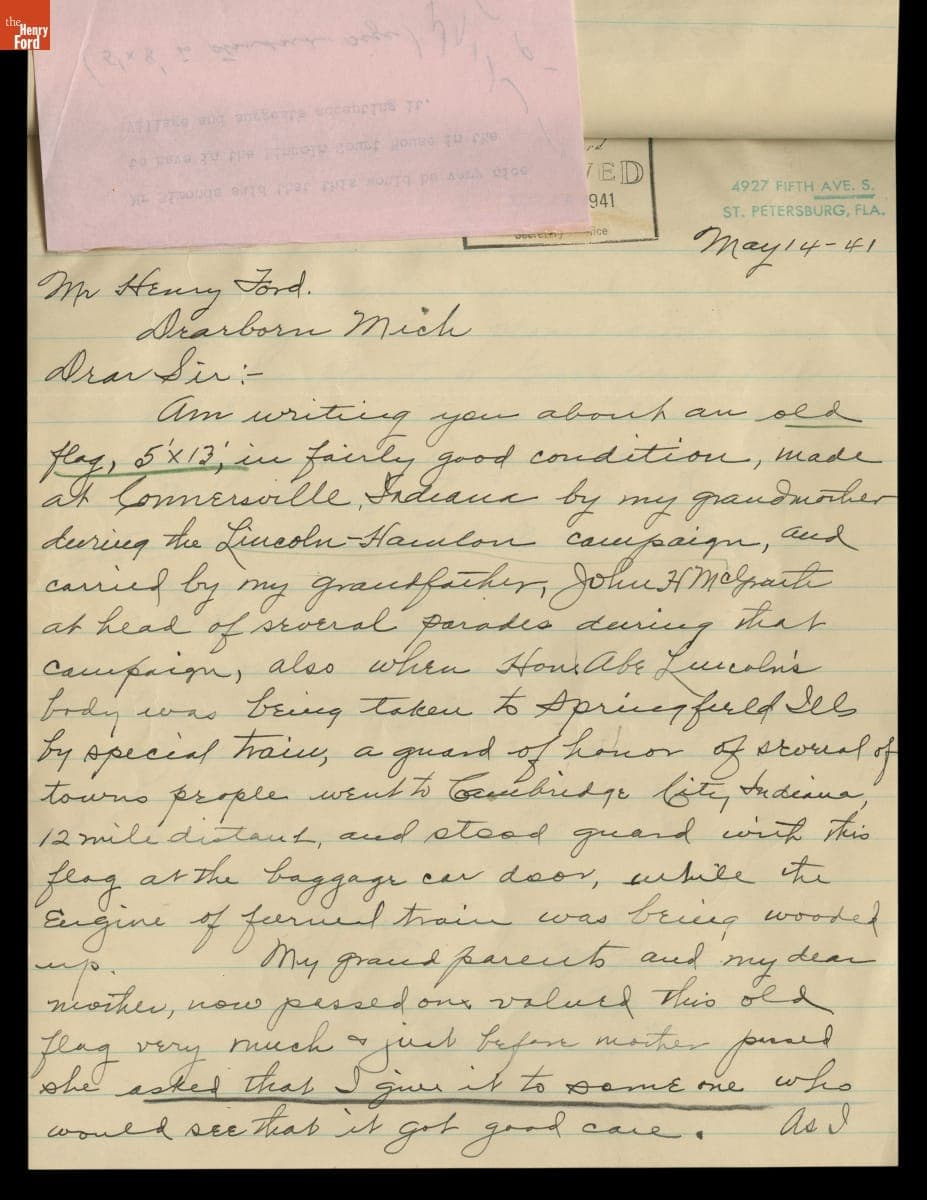 the
Henry
Ford
(5'x8' is standard
village and suggests accepting it.
to have in the Lincoln Court House in the
Mr Simonds said that this would be very nice
VED
941
4927 FIFTH AVE. S.
ST. PETERSBURG, FLA.
May 14-41
Mr Henry Ford.
Dearborn Mich
Dear Sir:-
Am writing you about an old
flag, 5'x13', in fairly good condition, made
at Connersville, Indiana by my grandmother
during the Lincoln-Hamlon campaign, and
carried by my grandfather, John H McGrath
at head of several parades during that
campaign, also when Hon. Abe Lincoln's
body was being taken to Springfield Ills
by special train, a guard of honor of several of
towns people went to Cambridge City, Indiana,
12 mile distant, and stood guard with this
flag at the baggage car door, while the
Engine of funeral train was being wooded
up. My grandparents and my dear
mother, now passed on, valued this old
flag very much & just before mother passed
she asked that I give it to some one who
would see that it got good care. As I